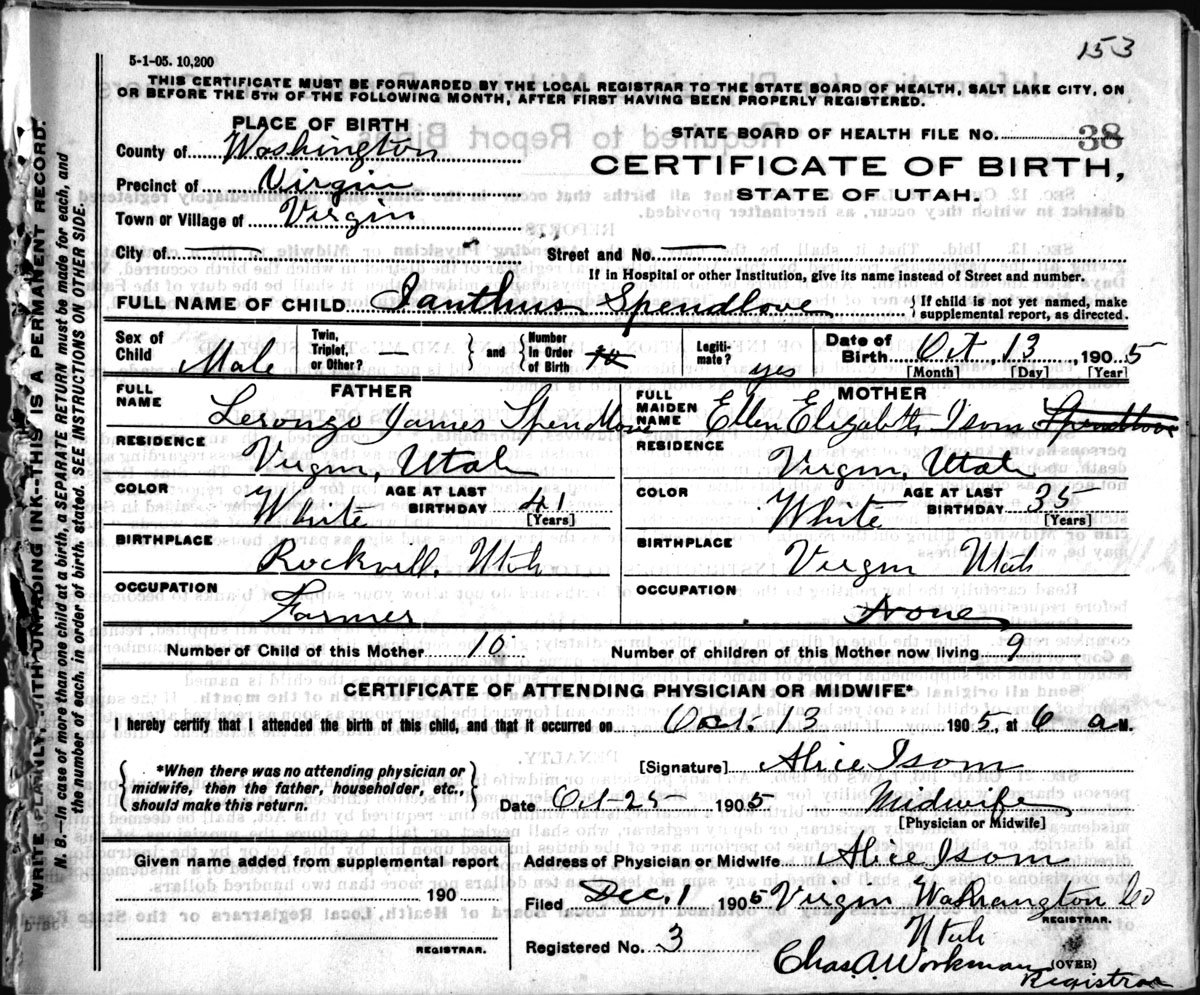 153
5-1-05. 10,200
THIS CERTIFICATE MUST BE FORWARDED BY THE LOCAL REGISTRAR TO THE STATE BOARD OF HEALTH, SALT LAKE CITY, ON
OR BEFORE THE 5TH OF THE FOLLOWING MONTH, AFTER FIRST HAVING BEEN PROPERLY REGISTERED.
PLACE OF BIRTH
County of Washington
Precinct of Virgin
Town or Village of Virgin
City of —
STATE BOARD OF HEALTH FILE NO. 38
CERTIFICATE OF BIRTH,
STATE OF UTAH.
Street and No. —
If in Hospital or other Institution, give its name instead of Street and number.
FULL NAME OF CHILD Ianthus Spendlove { If child is not yet named, make
supplemental report, as directed.
Sex of
Child Male
Twin,
Triplet,
or Other? — } and { Number
in Order
of Birth
Legiti-
mate? yes
Date of
Birth Oct, 13, 1905
[Month] [Day] [Year]
FATHER
FULL
NAME Leronzo James Spendlove
RESIDENCE
Virgin, Utah
COLOR White AGE AT LAST
BIRTHDAY 41
[Years]
BIRTHPLACE
Rockvill, Utah
OCCUPATION
Farmer
MOTHER
FULL
MAIDEN
NAME Ellen Elizabeth Isom Spendlove
RESIDENCE
Virgin, Utah
COLOR White AGE AT LAST
BIRTHDAY 35
[Years]
BIRTHPLACE
Virgin Utah
OCCUPATION
None
Number of Child of this Mother 10 Number of children of this Mother now living 9
CERTIFICATE OF ATTENDING PHYSICIAN OR MIDWIFE*
I hereby certify that I attended the birth of this child, and that it occurred on Oct. 13 1905, at 6 a M.
{ *When there was no attending physician or
midwife, then the father, householder, etc.,
should make this return. }
[Signature] Alice Isom
Date Oct-25 1905 Midwife
[Physician or Midwife]
Given name added from supplemental report
190
REGISTRAR.
Address of Physician or Midwife Alice Isom
Filed Dec. 1 1905 Virgin Washington Co
REGISTRAR.
Utah
Registered No. 3
Chas. A. Workman (OVER)
Registrar
WRITE PLAINLY, WITH UNFADING INK--THIS IS A PERMANENT RECORD.
N. B.—In case of more than one child at a birth, a SEPARATE RETURN must be made for each, and
the number of each, in order of birth, stated. SEE INSTRUCTIONS ON OTHER SIDE.